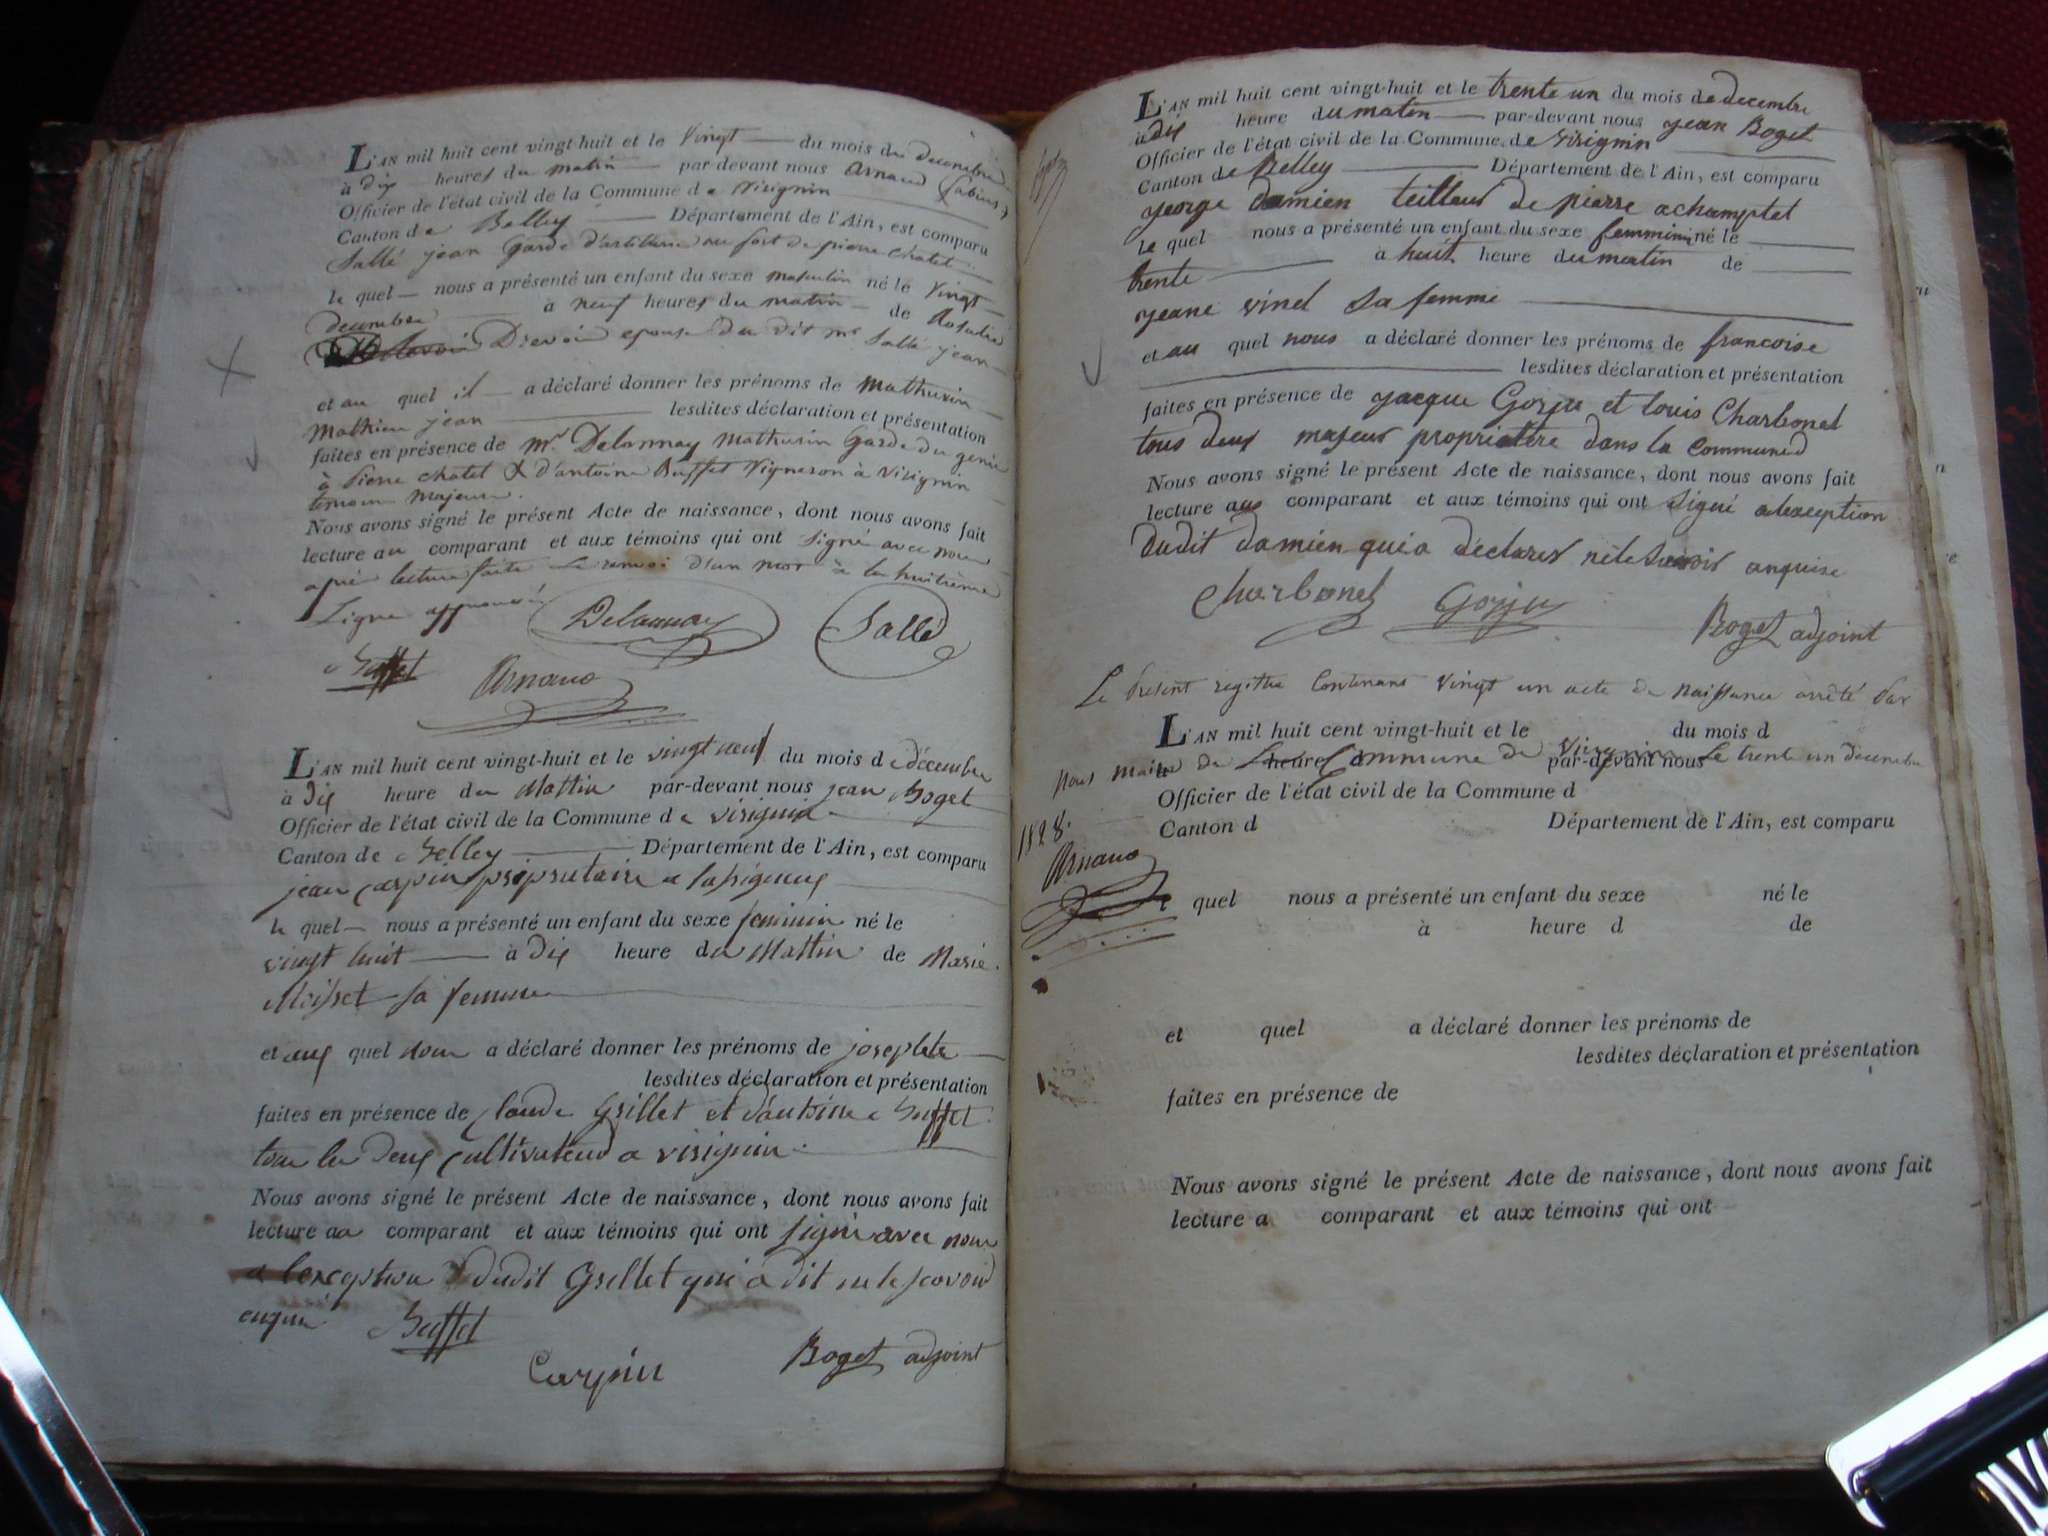 L'AN mil huit cent vingt-huit et le Vingt du mois de decembre
à dix heures du matin par-devant nous Arnaud Sabin
Officier de l'état civil de la Commune de Virignin
Canton de Belley Département de l'Ain, est comparu
Sallé jean Garde d'artillerie au fort de pierre chatel
le quel nous a présenté un enfant du sexe masculin né le Vingt
decembre à neuf heures du matin de Rosalie
Drevoin epouse du dit mr Sallé jean
et au quel il a déclaré donner les prénoms de Mathurin
Mathieu jean lesdites déclaration et présentation
faites en présence de mr. Delaunay Mathurin Garde du genie
à Pierre chatel & d'antoine Buffet Vigneron à Virignin
temoins majeurs.
Nous avons signé le présent Acte de naissance, dont nous avons fait
lecture au comparant et aux témoins qui ont signé avec nous
aprés lecture faite le renvoi d'un mot à la huitième
Ligne approuvé
Delaunay Sallé
Buffet Arnaud
L'AN mil huit cent vingt-huit et le vingt neuf du mois de décembre
à dix heure du Mattin par-devant nous jean Boget
Officier de l'état civil de la Commune de virignin
Canton de Belley Département de l'Ain, est comparu
jean Carpin propriutaire a
le quel nous a présenté un enfant du sexe feminin né le
vingt huit à dix heure du Mattin de Marie
Moisset sa femme
et auq quel nous a déclaré donner les prénoms de josephte
lesdites déclaration et présentation
faites en présence de Claude Grillet et d'antoine Buffet
tous les deux Cultivateurs a virignin.
Nous avons signé le présent Acte de naissance, dont nous avons fait
lecture au comparant et aux témoins qui ont signé avec nous
a lexception dudit Grillet qui a dit ne le scavoir
enquis
Buffet
Carpin Boget adjoint
L'AN mil huit cent vingt-huit et le trente un du mois de decembre
à dix heure du matin par-devant nous jean Boget
Officier de l'état civil de la Commune de virignin
Canton de Belley Département de l'Ain, est comparu
george damien teilleur de pierre a champtel
le quel nous a présenté un enfant du sexe femminin né le
trente à huit heure du matin de
jeane vinet sa femme
et au quel nous a déclaré donner les prénoms de francoise
lesdites déclaration et présentation
faites en présence de jacque Gorju et louis Charbonet
tous deux majeur propriettere dans la commune
Nous avons signé le présent Acte de naissance, dont nous avons fait
lecture aux comparant et aux témoins qui ont signé a lexception
dudit damien qui a déclarer ne le savoir anquise
Charbonet Gorju
Boget adjoint
Le present registre Contenant Vingt un acte de naissance arrêté par
L'AN mil huit cent vingt-huit et le du mois d
Nous maire de la Commune de Virignin le trente un decembre
à heure d par-devant nous
Officier de l'état civil de la Commune d
1828.
Canton d Département de l'Ain, est comparu
Arnaud
quel nous a présenté un enfant du sexe né le
à heure d de
et quel a déclaré donner les prénoms de
lesdites déclaration et présentation
faites en présence de
Nous avons signé le présent Acte de naissance, dont nous avons fait
lecture a comparant et aux témoins qui ont